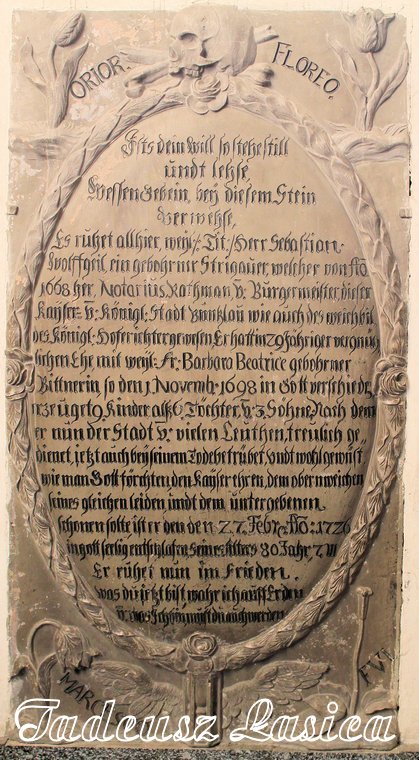 ORIOR.
FLOREO.
Ists dein will so stehe still
undt lehse,
Wessen gebein, bey diesem Stein
verwehse,
Es ruhet allhier, weyl: Tit: Herr Sebastian
Wolffgeil, ein gebohrner Strigauer, welcher von Ao
1668 her, Notarius Rathman v: Bürgermeister, dieser
Kayser: v: Königl: Stadt Buntzlau wie auch des weichbil
des Königl: Hoferichter gewesen. Er hatt in 29 Jähriger vergnüg
lichen Ehe mit weyl: Fr: Barbara Beatrice gebohrner
Bittnerin so den 1 Novemb: 1698 in Gott verschieden,
erzeuget 9 Kinder alß 6 Töchter v: 3 Söhne Nach dem
er nun der Stadt v: vielen Leuthen, treulich ge
dienet, jetzt auch bey seinem Tode betrübet undt wohl gewust
wie man Gott förchten, den Kayser ehren, dem obern weichen
seines gleichen leiden undt dem untergebenen
schonen solte ist er den den 27. Febr: Ao: 1726
in gott seelig entschlafen Seines Alters 80 Jahr, 7. M
Er ruhet nun im Frieden.
was du jetzt bist, wahr ich auff Erden
v: was Ich bin must du auch werden
FVI
Tadeusz Łasica